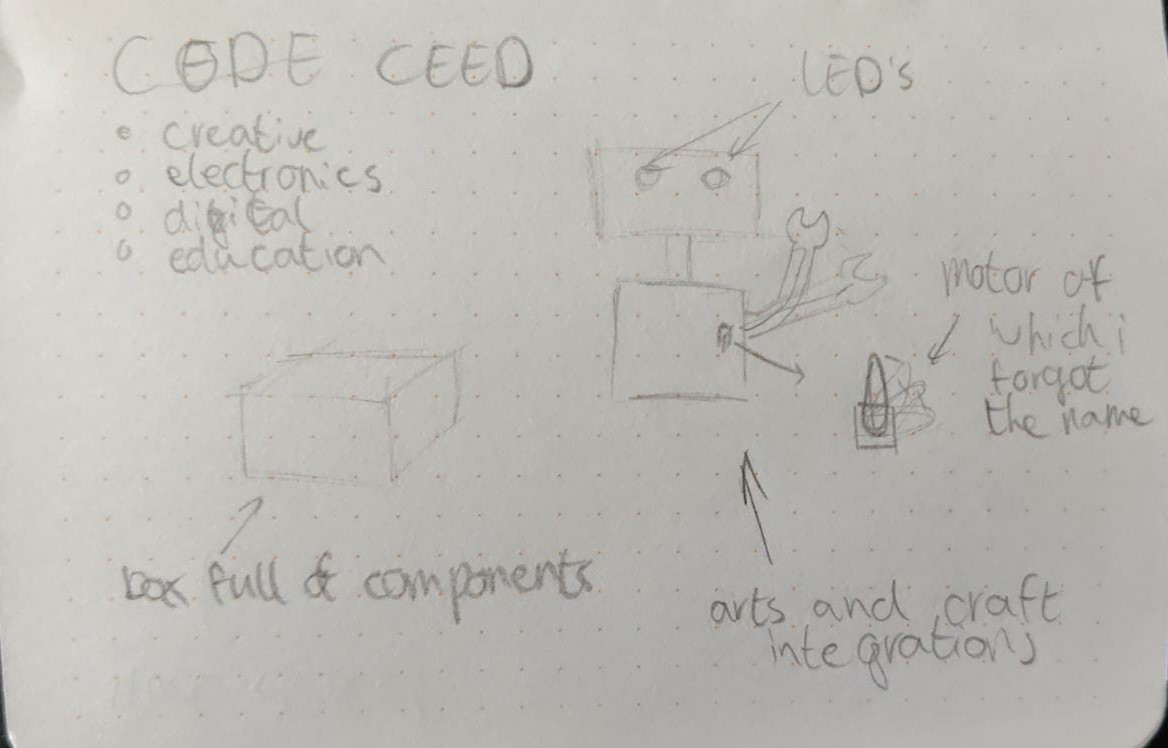 CODE CEED
LED's
• creative
• electronics
• digital
• education
motor of
which i
forgot
the name
box full of components
arts and craft
integrations